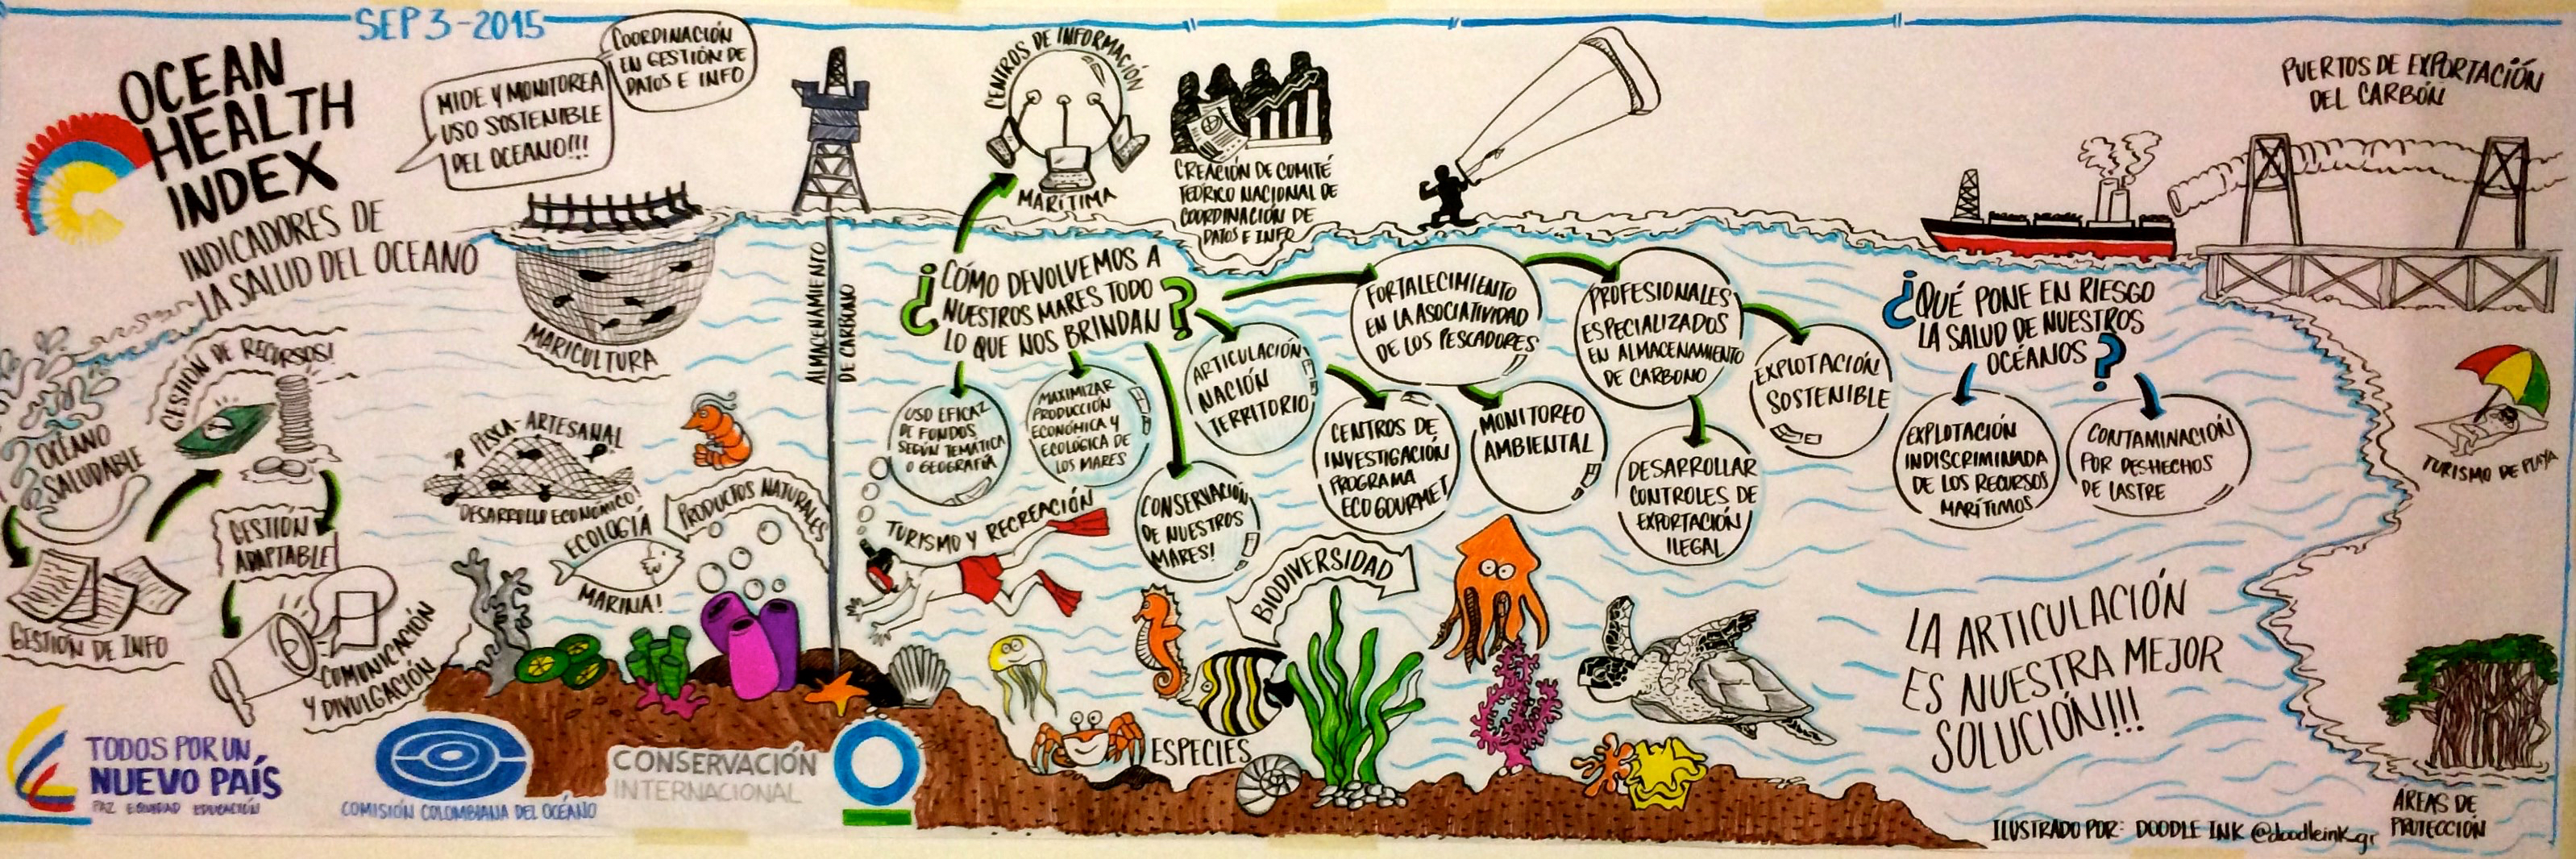 SEP 3-2015
OCEAN
HEALTH
INDEX
INDICADORES DE
LA SALUD DEL OCEANO
MIDE Y MONITOREA
USO SOSTENIBLE
DEL OCEANO!!!
COORDINACIÓN
EN GESTIÓN DE
DATOS E INFO
MARICULTURA
ALMACENAMIENTO
DE CARBONO
CENTROS DE INFORMACIÓN
MARÍTIMA
CREACIÓN DE COMITÉ
TEÓRICO NACIONAL DE
COORDINACIÓN DE
DATOS E INFO
PUERTOS DE EXPORTACIÓN
DEL CARBÓN
OCÉANO
SALUDABLE
GESTIÓN DE INFO
GESTIÓN DE RECURSOS!
GESTIÓN
ADAPTABLE
COMUNICACIÓN
Y DIVULGACIÓN
PESCA-ARTESANAL
DESARROLLO ECONÓMICO!
ECOLOGÍA
MARINA!
PRODUCTOS NATURALES
¿CÓMO DEVOLVEMOS A
NUESTROS MARES TODO
LO QUE NOS BRINDAN?
USO EFICAZ
DE FONDOS
SEGÚN TEMÁTICA
O GEOGRAFÍA
MAXIMIZAR
PRODUCCIÓN
ECONÓMICA Y
ECOLÓGICA DE
LOS MARES
CONSERVACIÓN
DE NUESTROS
MARES!
ARTICULACIÓN
NACIÓN
TERRITORIO
CENTROS DE
INVESTIGACIÓN
PROGRAMA
ECO GOURMET
FORTALECIMIENTO
EN LA ASOCIATIVIDAD
DE LOS PESCADORES
MONITOREO
AMBIENTAL
PROFESIONALES
ESPECIALIZADOS
EN ALMACENAMIENTO
DE CARBONO
DESARROLLAR
CONTROLES DE
EXPORTACIÓN
ILEGAL
EXPLOTACIÓN
SOSTENIBLE
¿QUÉ PONE EN RIESGO
LA SALUD DE NUESTROS
OCÉANOS?
EXPLOTACIÓN
INDISCRIMINADA
DE LOS RECURSOS
MARÍTIMOS
CONTAMINACIÓN
POR DESHECHOS
DE LASTRE
TURISMO DE PLAYA
TURISMO Y RECREACIÓN
BIODIVERSIDAD
ESPECIES
LA ARTICULACIÓN
ES NUESTRA MEJOR
SOLUCIÓN!!!
AREAS DE
PROTECCIÓN
TODOS POR UN
NUEVO PAÍS
PAZ EQUIDAD EDUCACIÓN
COMISIÓN COLOMBIANA DEL OCÉANO
CONSERVACIÓN
INTERNACIONAL
ILUSTRADO POR: DOODLE INK @doodleink.gr